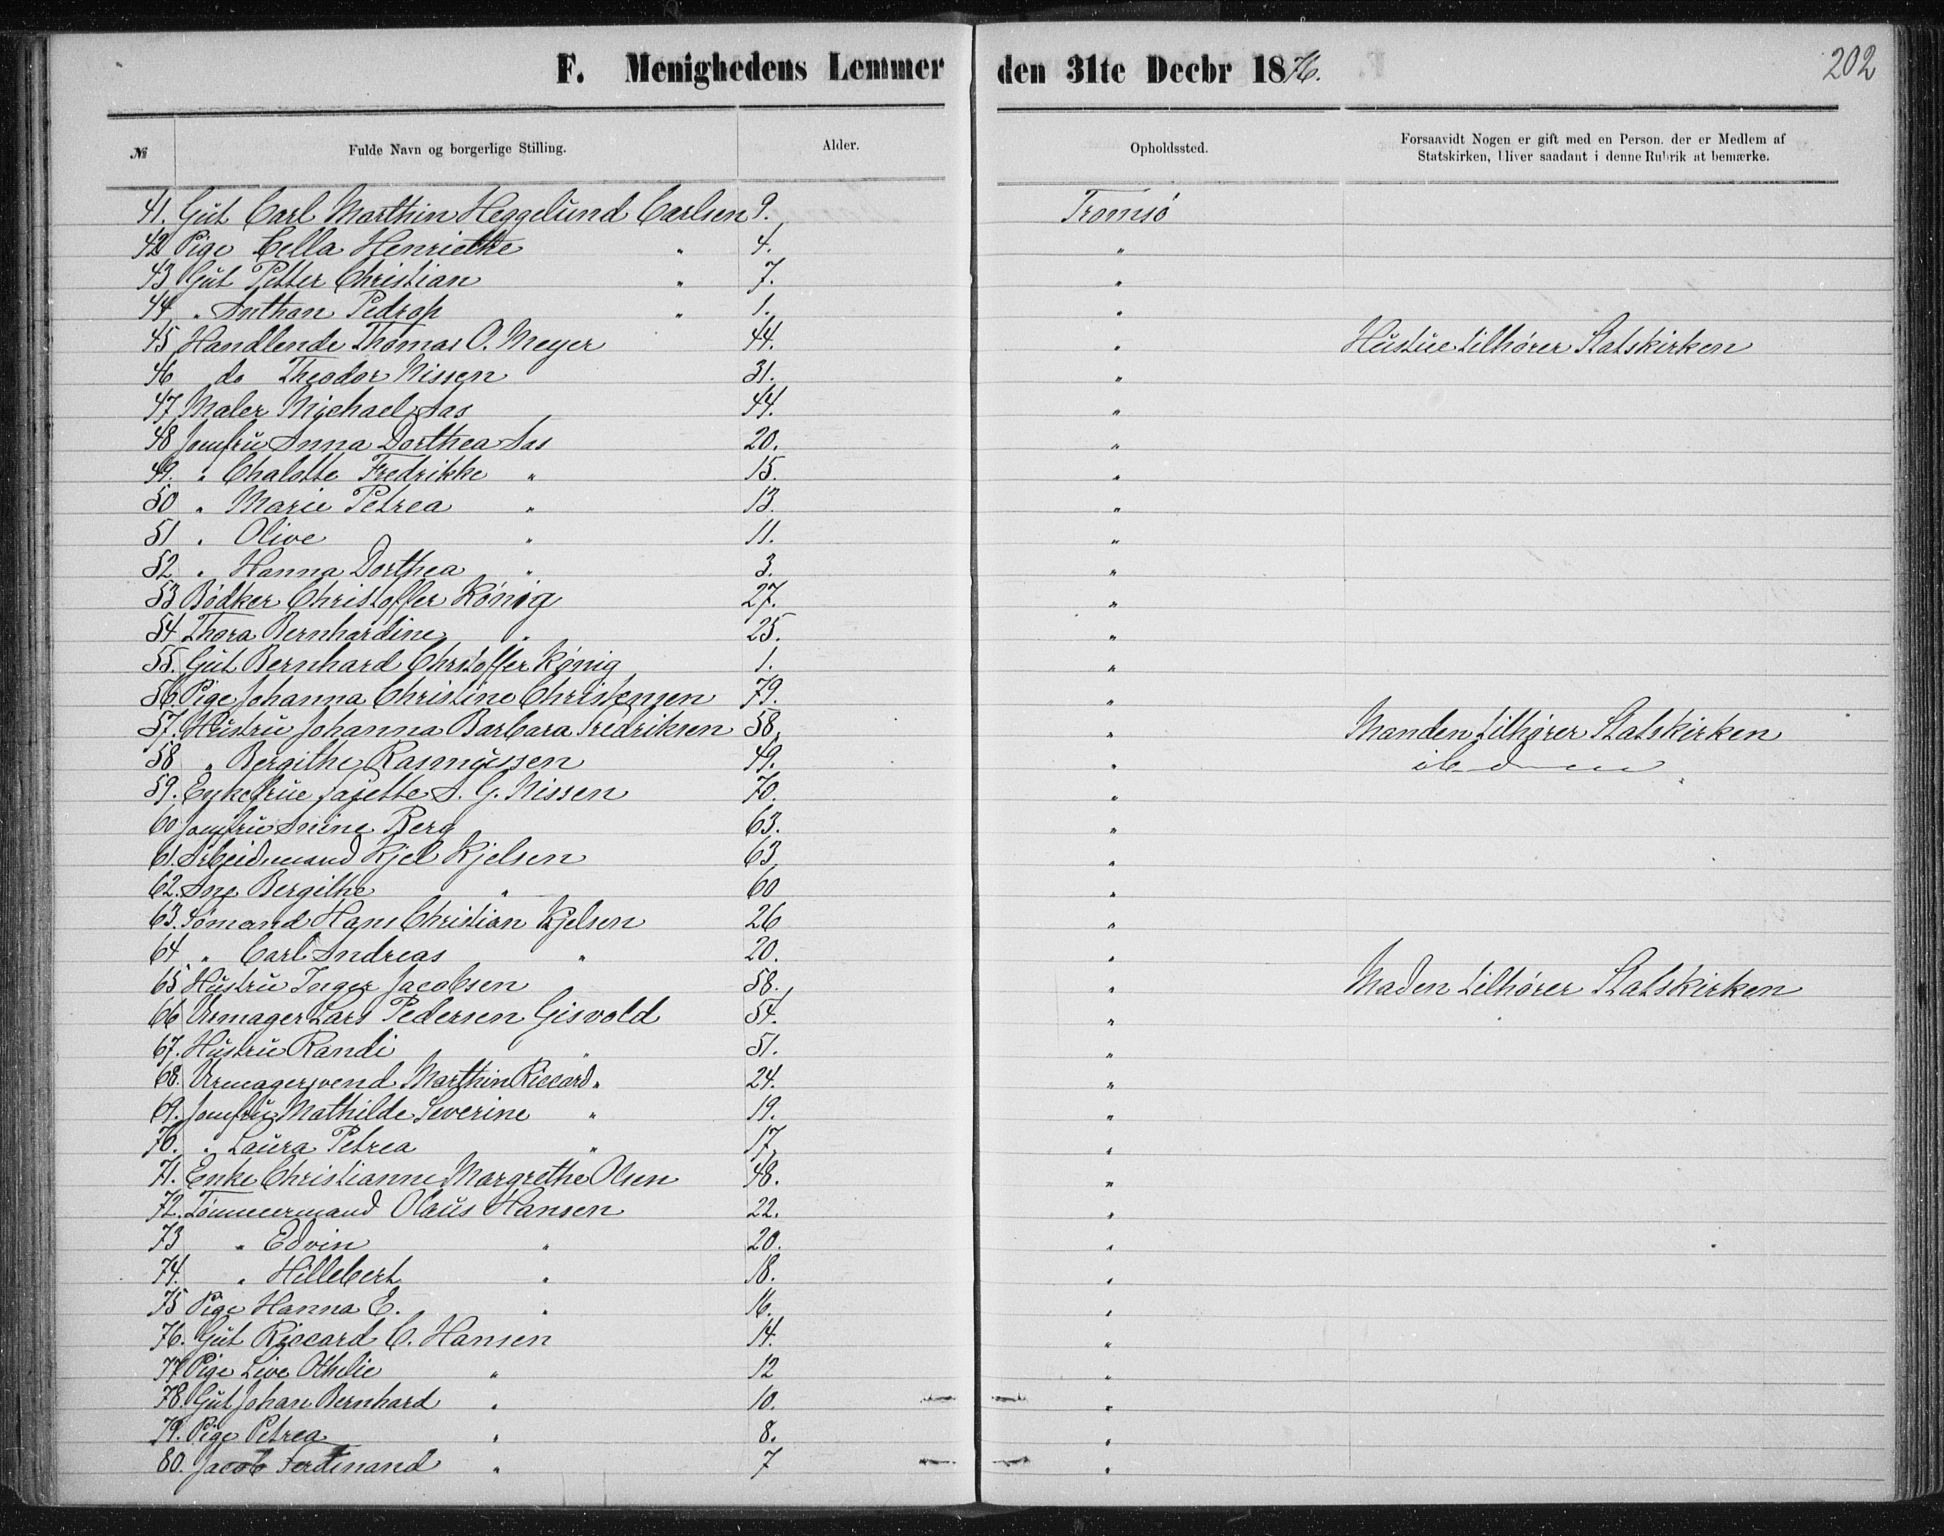 F. Menighedens Lemmer den 31te Decbr 1876.
202
№ Fulde Navn og borgerlige Stilling. Alder. Opholdssted. Forsaavidt Nogen er gift med en Person, der er Medlem af
Statskirken, bliver saadant i denne Rubrik at bemærke.
41. Gut Carl Marthin Heggelund Carlsen 9. Tromsø
42 Pige Cella Henriette " 4. "
43 Gut Petter Christian " 7. "
44 " Anthon Pedrop " 1. "
45 Handlende Thomas O. Meyer 44. " Hustue tilhører Statskirken
46 do Theodor Nissen 31. "
47 Maler Mychael Aas 44. "
48 Jomfru Anna Dorthea Aas 20. "
49. " Chalotte Fredrikke " 15. "
50 " Marie Petrea " 13. "
51 " Olive " 11. "
52 " Hanna Dorthea " 3. "
53 Bødker Christoffer Kønig 27. "
54 Thora Bernhardine " 25. "
55. Gut Bernhard Christoffer Kønig 1. "
56. Pige Johanna Christine Christensen 79. "
57. Hustru Johanna Barbara Fredriksen 58, " Manden tilhører Statskirken
58 " Bergithe Rasmussen 49. "
59. Enkefrue Jagette A. G. Nissen 70. "
60 Jomfru Anine Berg 63. "
61. Arbeidsmand Kjel Kjelsen 63 "
62. Ane Bergithe " 60 "
63. Sømand Hans Christian Kjelsen 26 "
64 " Carl Andreas " 20. "
65 Hustru Inger Jacobsen 58. " Maden tilhører Statskirken
66 Urmager Lars Pedersen Gisvold 54. "
67. Hustru Randi " 51. "
68. Urmagersvend Marthin Riccard " 24. "
69. Jomfru Mathilde Severine " 19. "
70. " Laura Petrea " 17, "
71. Enke Christianne Margrethe Olsen 48. "
72. Tømmermand Olaus Hansen 22. "
73 " Edvin " 20. "
74. " Hillebert " 18. "
75 Pige Hanna E. " 16. "
76. Gut Riccard C. Hansen 14. "
77 Pige Live Othelie " 12 "
78. Gut Johan Bernhard " 10. "
79. Pige Petrea " 8. "
80. Jacob Ferdinand " 7 "